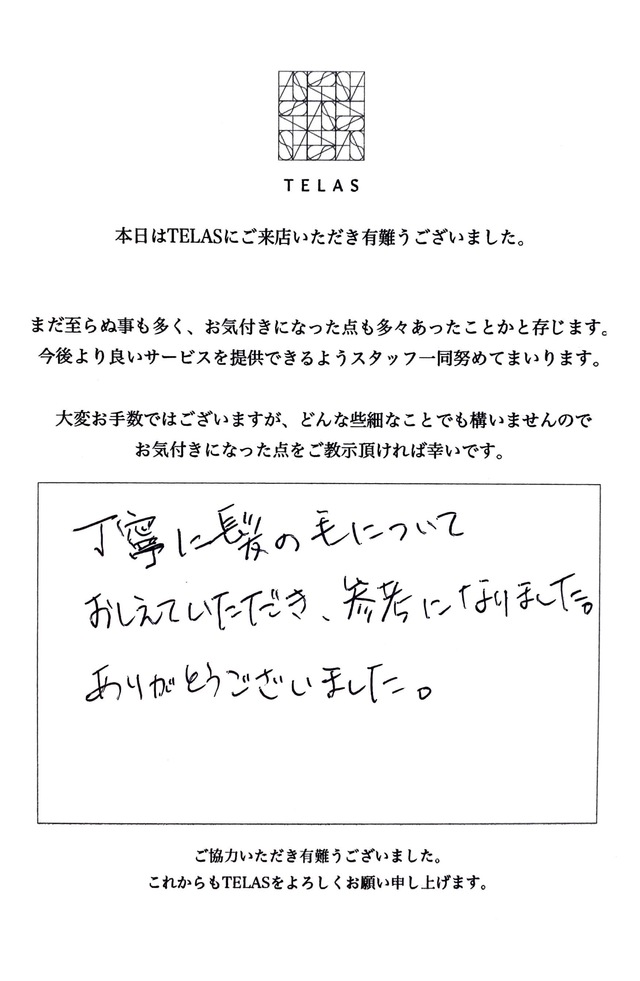 TELAS
本日はTELASにご来店いただき有難うございました。
まだ至らぬ事も多く、お気付きになった点も多々あったことかと存じます。
今後より良いサービスを提供できるようスタッフ一同努めてまいります。
大変お手数ではございますが、どんな些細なことでも構いませんので
お気付きになった点をご教示頂ければ幸いです。
丁寧に髪の毛について
おしえていただき、参考になりました。
ありがとうございました。
ご協力いただき有難うございました。
これからもTELASをよろしくお願い申し上げます。